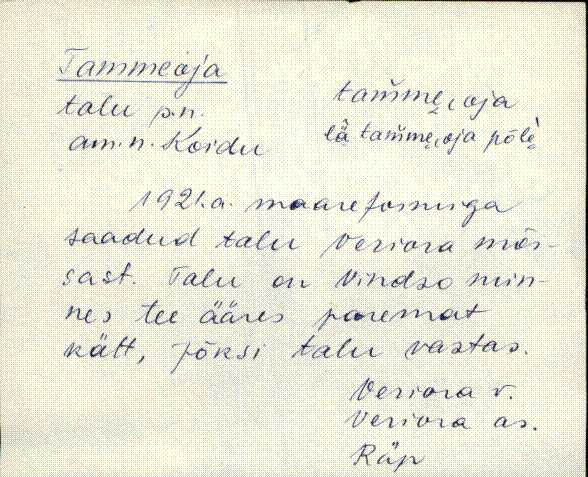 Tammeoja
talu p.n.
am.n. Koidu
tam̆mȩ, oja
lä tam̆mȩ, oja põlè̬
1921.a. maareformiga
saadud talu Veriora mõi-
sast. Talu on Vindso min-
nes tee ääres paremat
kätt, Jõksi talu vastas.
Veriora v.
Veriora as.
Räp